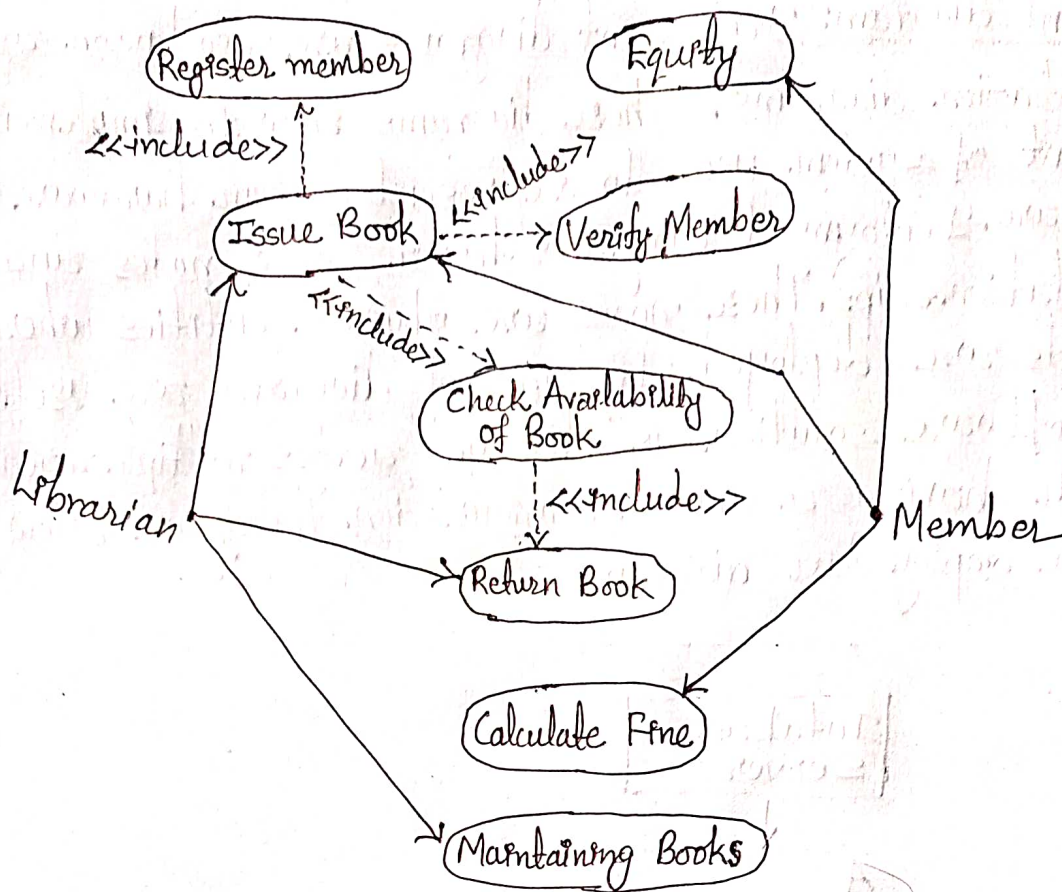 Register member
Equity
<<include>>
<<include>>
Issue Book
Verify Member
<<include>>
Check Availability
of Book
Librarian
<<include>>
Member
Return Book
Calculate Fine
Maintaining Books